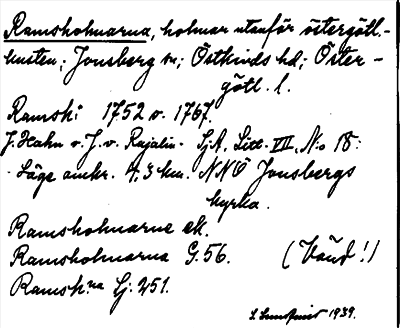 Ramsholmarna, holmar utanför östergötl.-
kusten; Jonsberg sn; Östkinds hd; Öster-
götl. l.
Ramsh: 1752 o. 1767.
J. Hahn o. J. v. Rajalin. SjA. Litt. VII, No 18:
Läge omkr. 4,3 km. NNÖ Jonsbergs
kyrka.
Ramsholmarne ek.
Ramsholmarna G. 56. (Vänd!)
Ramsh:na Lj: 251.
1939.